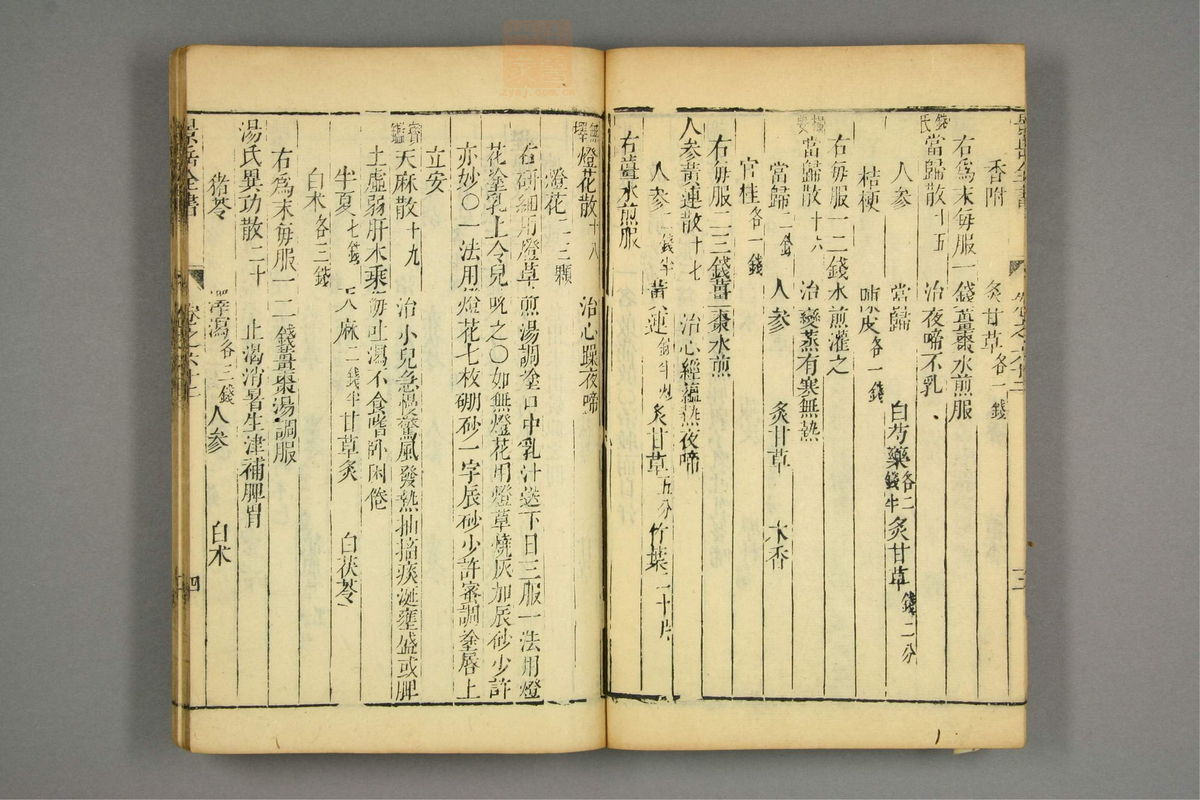 香附　炙甘草各一錢
右爲末每服一錢薑棗水煎服
錢氏當歸散十五　治夜啼不乳
人參　當歸　白芍藥各二錢半　炙甘草一錢二分
桔梗　陳皮各一錢
右每服一二錢水煎灌之
撮要當歸散十六　治變蒸有寒無熱
當歸二錢　人參　炙甘草　木香
官桂各一錢
右每服二三錢薑棗水煎
人參黃連散十七　治心經蘊熱夜啼
人參二錢半　黃連　炙甘草五分　竹葉二十片
右薑水煎服
燈花散十八　治心躁夜啼
燈花二三顆
右研細用燈草煎湯調塗口中乳汁送下日三服一法用燈
花塗乳上令兒吮之〇如無燈花用燈草燒灰加辰砂少許
亦妙〇一法用燈花七枚硼砂一字辰砂少許蜜調塗唇上
立安
寶鑑天麻散十九　治小兒急慢驚風發熱抽搐痰涎壅盛或脾
土虛弱肝木乘每吐瀉不食嗜卧困倦
半夏七錢　天麻二錢半　甘草炙　白茯苓
白术各三錢
右爲末每服一二錢薑棗湯調服
湯氏異功散二十　止渴消暑生津補脾胃
猪苓　澤瀉各三錢　人參　白术
景岳全書　卷之六十二　四